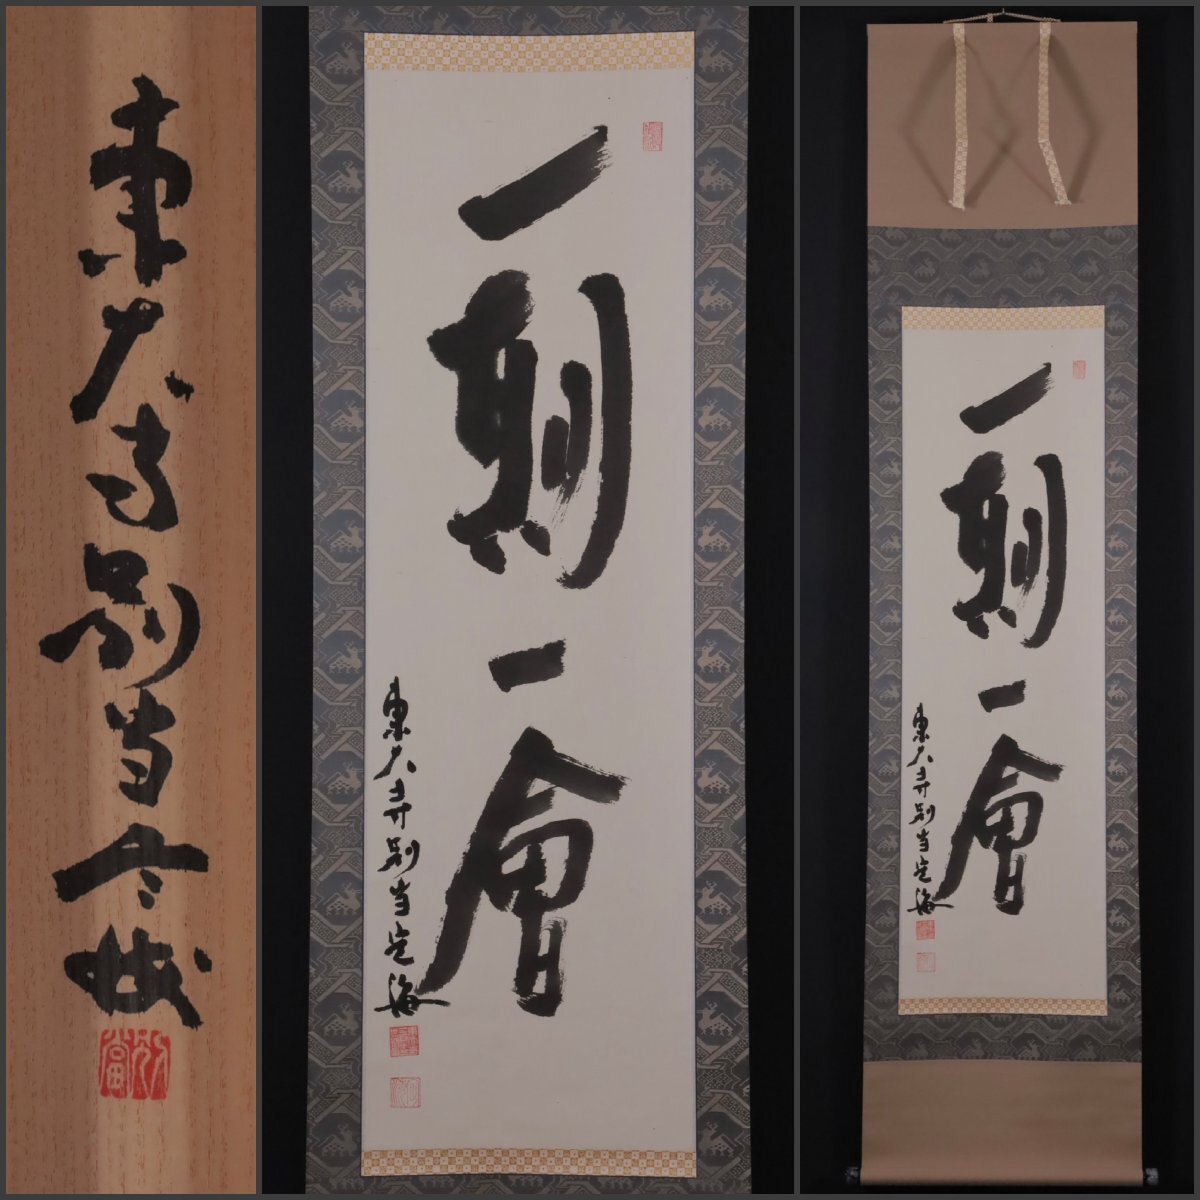 東大寺別当定海
別當
一期一會
東大寺別当定海
一期一會
東大寺別当定海